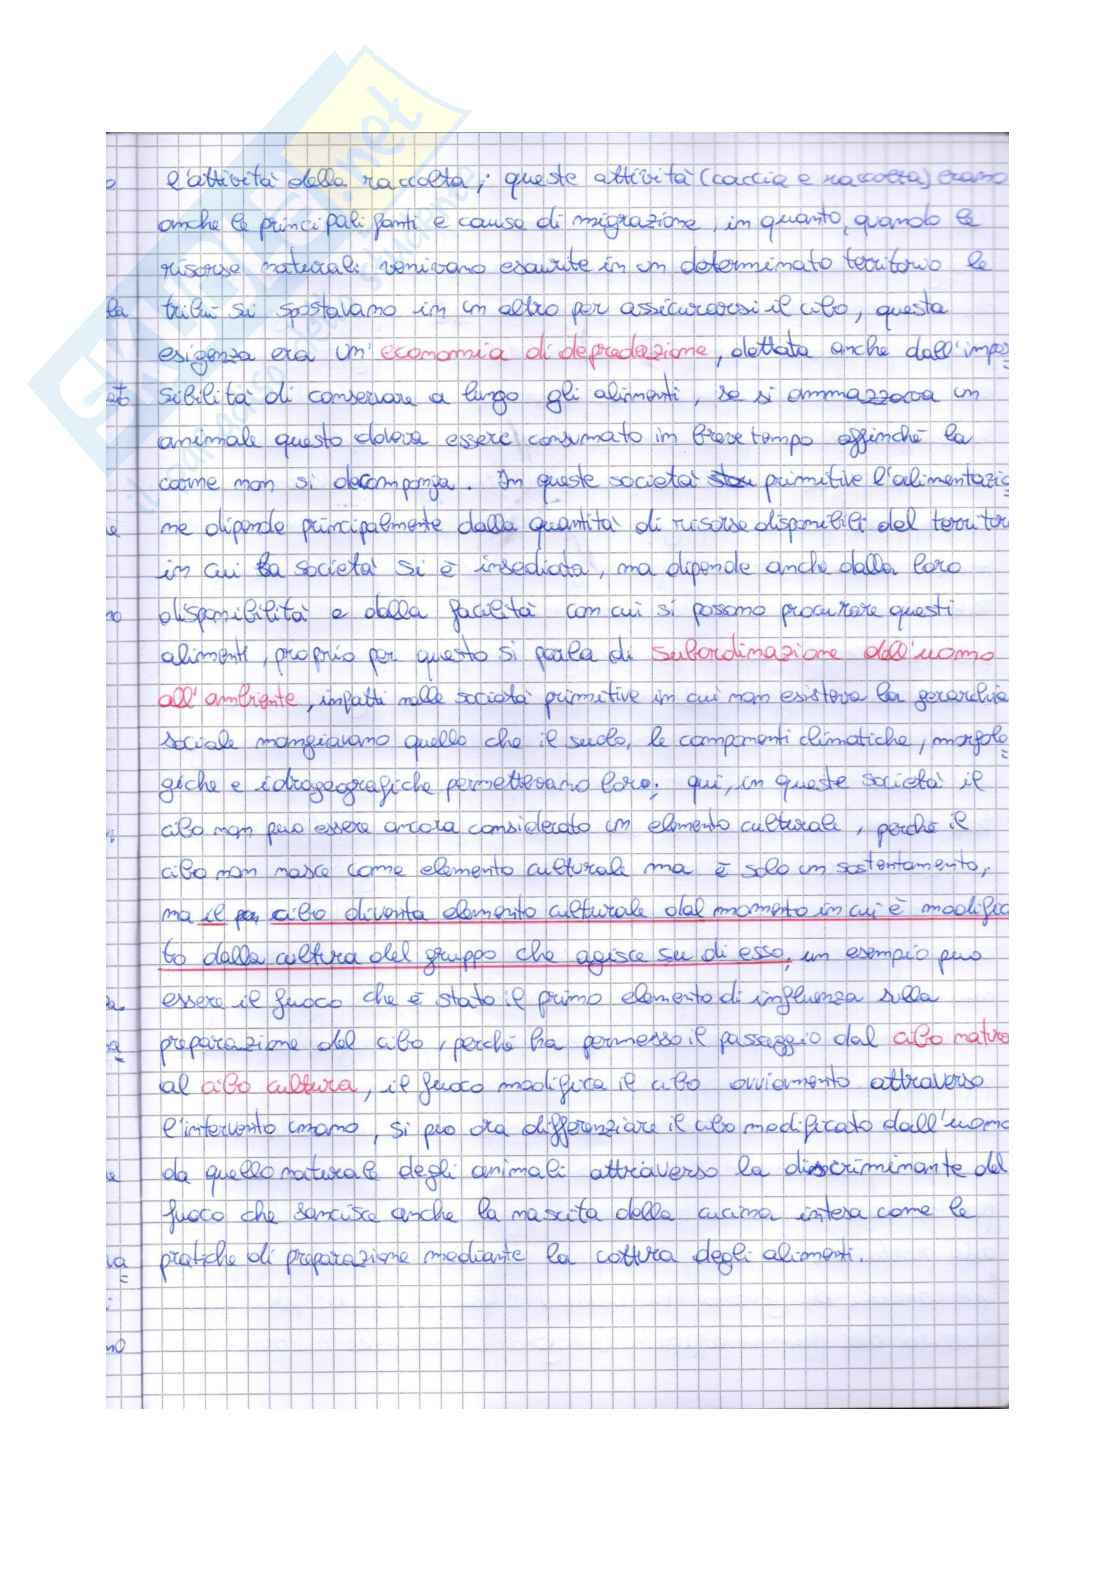 l'attività della raccolta; queste attività (caccia e raccolta) erano
anche le principali fonti e cause di migrazione, in quanto, quando le
risorse naturali venivano esaurite in un determinato territorio le
tribù si spostavano in un altro per assicurarsi il cibo, questa
esigenza era un'economia di depredazione, dettata anche dall'impos
sibilità di conservare a lungo gli alimenti, se si ammazzava un
animale questo doveva essere consumato in breve tempo affinché la
carne non si decomponga. In queste società primitive l'alimentazio
ne dipende principalmente dalla quantità di risorse disponibili del territor
in cui la società si è insediata, ma dipende anche dalla loro
disponibilità e dalla facilità con cui si possono procurare questi
alimenti, proprio per questo si parla di subordinazione dell'uomo
all'ambiente, infatti nelle società primitive in cui non esisteva la gerarchia
sociale mangiavano quello che il suolo, le componenti climatiche, morfolo
giche e idrogeografiche permettevano loro; qui, in queste società il
cibo non può essere ancora considerato un elemento culturale, perché il
cibo non nasce come elemento culturale ma è solo un sostentamento,
ma il cibo diventa elemento culturale dal momento in cui è modifica
to dalla cultura del gruppo che agisce su di esso, un esempio può
essere il fuoco che è stato il primo elemento di influenza sulla
preparazione del cibo, perché ha permesso il passaggio dal cibo natura
al cibo cultura, il fuoco modifica il cibo ovviamente attraverso
l'intervento umano, si può ora differenziare il cibo modificato dall'uomo
da quello naturale degli animali attraverso la discriminante del
fuoco che sancisce anche la nascita della cucina intesa come le
pratiche di preparazione mediante la cottura degli alimenti.